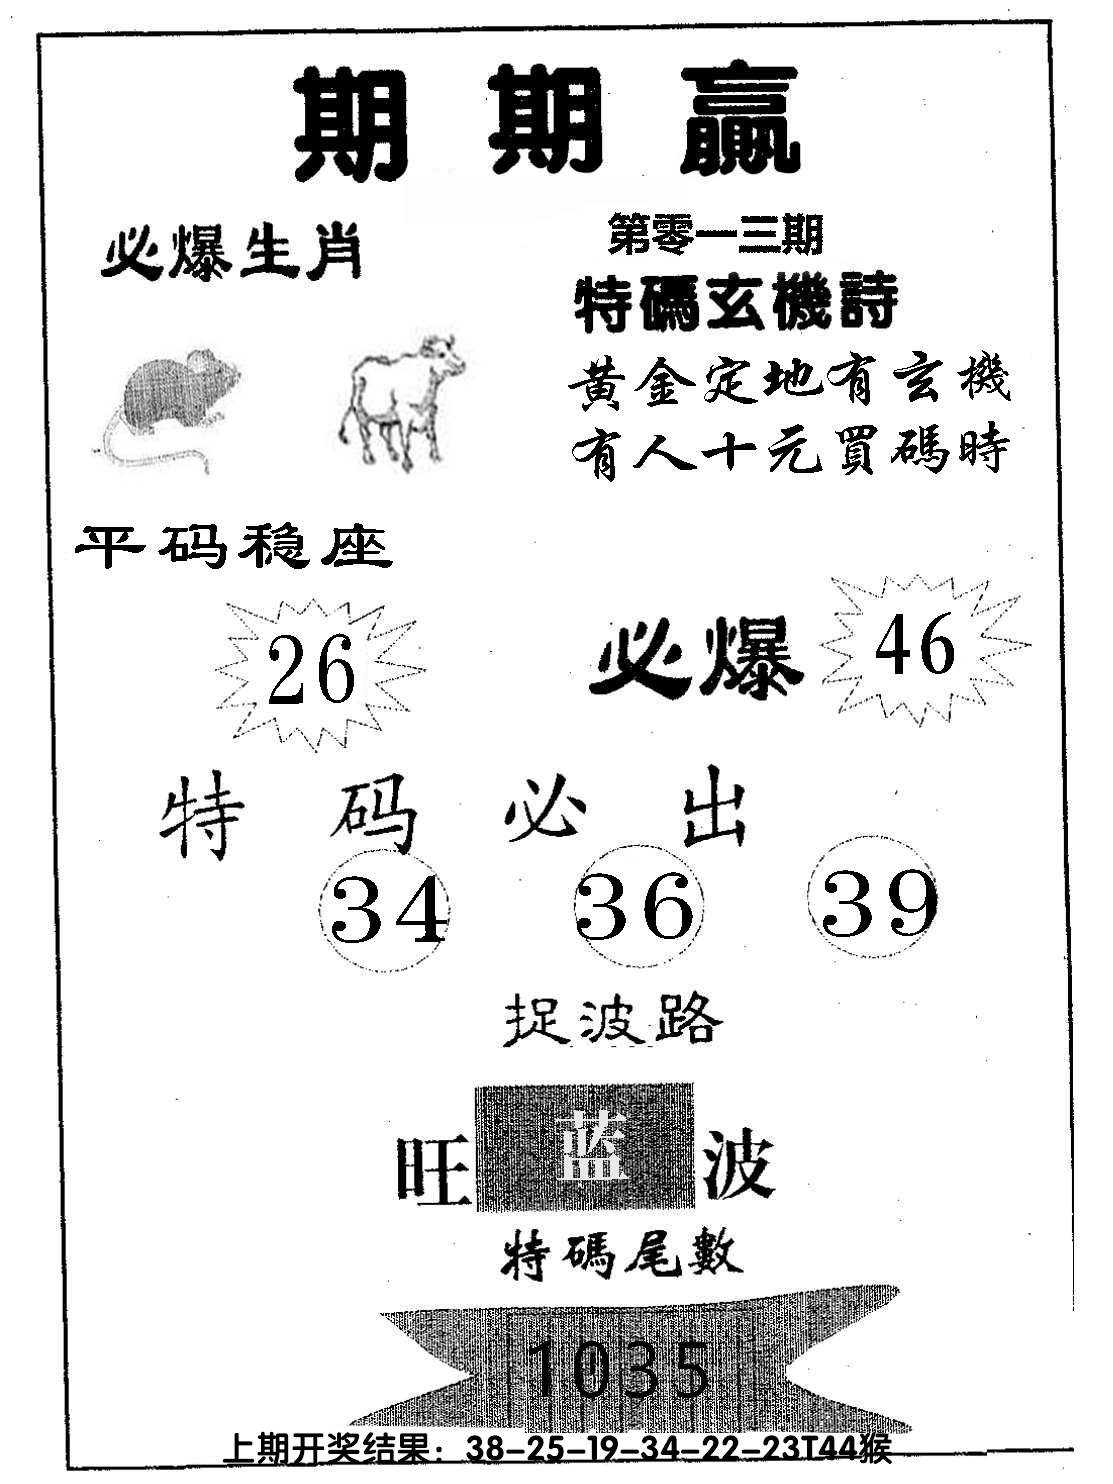 期期赢
必爆生肖
第零一三期
特碼玄機詩
黄金定地有玄機
有人十元買碼時
平码稳座
26
必爆
46
特码必出
34 36 39
捉波路
旺蓝波
特碼尾數
1035
上期开奖结果：38-25-19-34-22-23T44猴